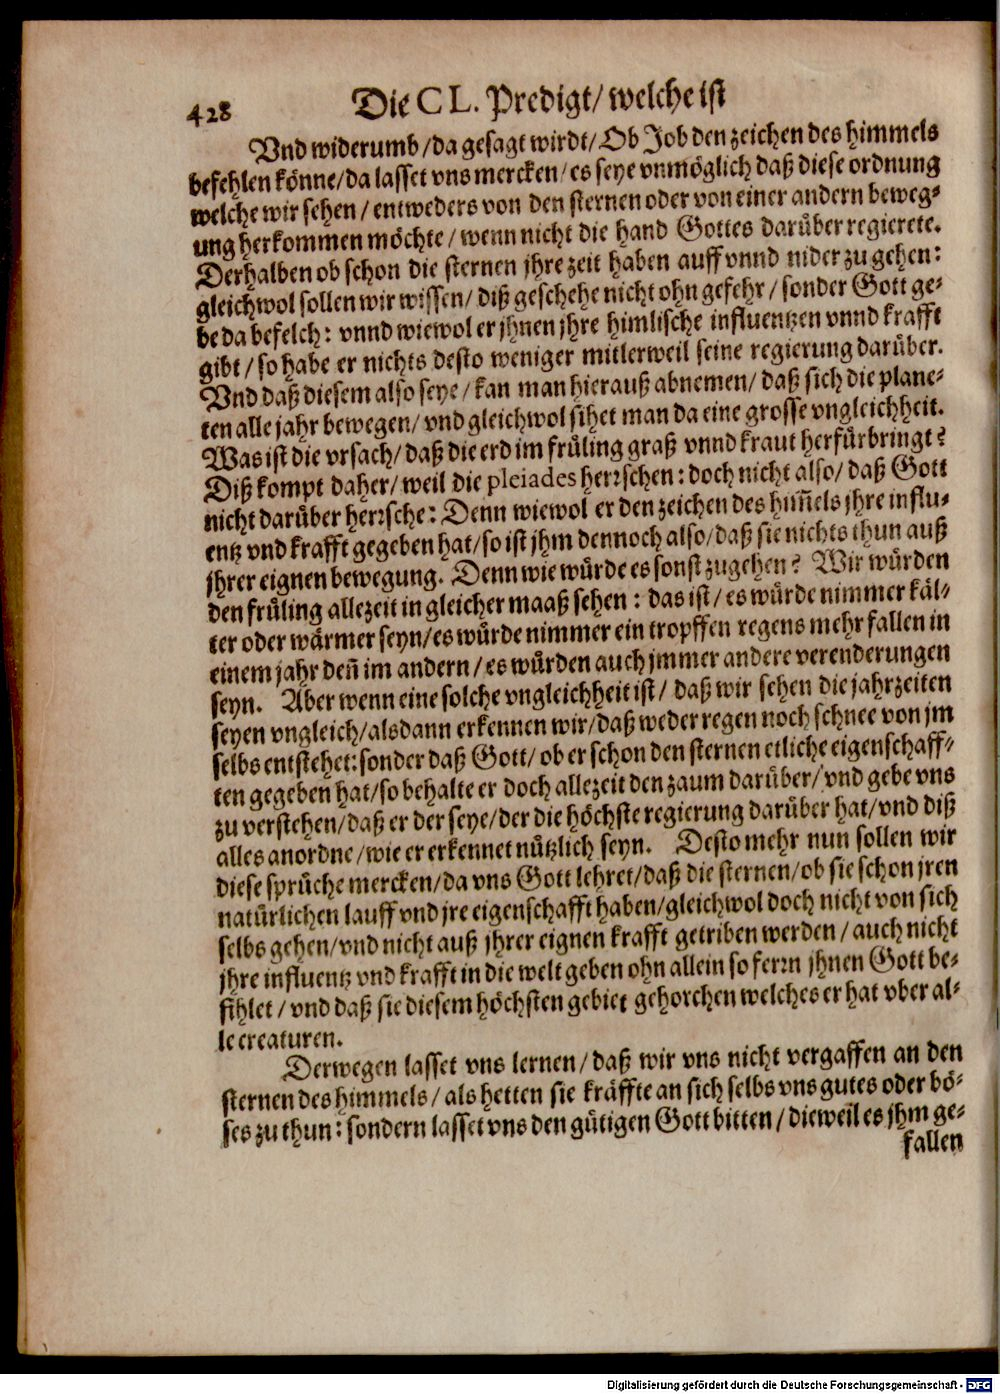 428
Die CL. Predigt/ welche ist
Vnd widerumb/ da gesagt wirdt/ Ob Job den zeichen des himmels
befehlen könne/ da lasset vns mercken/ es seye vnmöglich daß diese ordnung
welche wir sehen/ entweders von den sternen oder von einer andern beweg-
ung herkommen möchte/ wenn nicht die hand Gottes darüber regierete.
Derhalben ob schon die sternen jhre zeit haben auff vnnd nider zu gehen:
gleichwol sollen wir wissen/ diß geschehe nicht ohn gefehr/ sonder Gott ge-
be da befelch: vnnd wiewol er jhnen jhre himlische influentzen vnnd krafft
gibt/ so habe er nichts desto weniger mitlerweil seine regierung darüber.
Vnd daß diesem also seye/ kan man hierauß abnemen/ daß sich die plane-
ten alle jahr bewegen/ vnd gleichwol sihet man da eine grosse vngleichheit.
Was ist die vrsach/ daß die erd im früling graß vnnd kraut herfürbringt?
Diß kompt daher/ weil die pleiades herrschen: doch nicht also/ daß Gott
nicht darüber herrsche: Denn wiewol er den zeichen des him̃els jhre influ-
entz vnd krafft gegeben hat/ so ist jhm dennoch also/ daß sie nichts thun auß
jhrer eignen bewegung. Denn wie würde es sonst zugehen? Wir würden
den früling allezeit in gleicher maaß sehen: das ist/ es würde nimmer käl-
ter oder wärmer seyn/ es würde nimmer ein tropffen regens mehr fallen in
einem jahr deñ im andern/ es würden auch jmmer andere verenderungen
seyn. Aber wenn eine solche vngleichheit ist/ daß wir sehen die jahrzeiten
seyen vngleich/ alsdann erkennen wir/ daß weder regen noch schnee von jm
selbs entstehet: sonder daß Gott/ ob er schon den sternen etliche eigenschaff-
ten gegeben hat/ so behalte er doch allezeit den zaum darüber/ vnd gebe vns
zu verstehen/ daß er der seye/ der die höchste regierung darüber hat/ vnd diß
alles anordne/ wie er erkennet nützlich seyn. Desto mehr nun sollen wir
diese sprüche mercken/ da vns Gott lehret/ daß die sternen/ ob sie schon jren
natürlichen lauff vnd jre eigenschafft haben/ gleichwol doch nicht von sich
selbs gehen/ vnd nicht auß jhrer eignen krafft getriben werden/ auch nicht
jhre influentz vnd krafft in die welt geben ohn allein so ferrn jhnen Gott be-
fihlet/ vnd daß sie diesem höchsten gebiet gehorchen welches er hat vber al-
le creaturen.
Derwegen lasset vns lernen/ daß wir vns nicht vergaffen an den
sternen des himmels/ als hetten sie kräffte an sich selbs vns gutes oder bö-
ses zu thun: sondern lasset vns den gütigen Gott bitten/ dieweil es jhm ge-
fallen
Digitalisierung gefördert durch die Deutsche Forschungsgemeinschaft - DFG